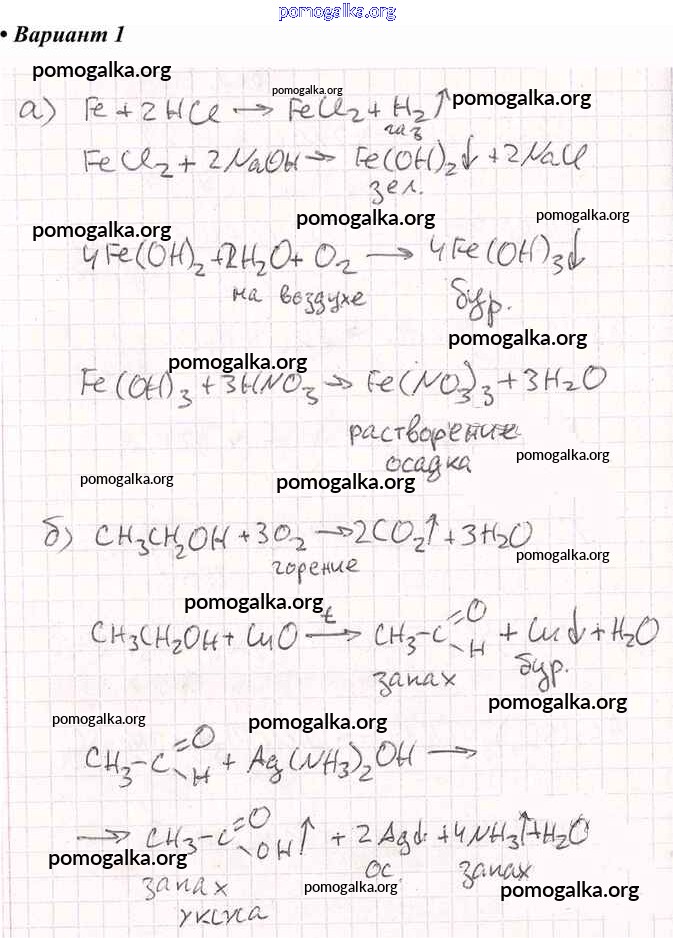 pomogalka.org
• Вариант 1
pomogalka.org
pomogalka.org
pomogalka.org
а) Fe + 2HCl → FeCl₂ + H₂↑
газ
FeCl₂ + 2NaOH → Fe(OH)₂↓ + 2NaCl
зел.
pomogalka.org
pomogalka.org
pomogalka.org
4Fe(OH)₂ + 2H₂O + O₂ → 4Fe(OH)₃↓
на воздухе бур.
pomogalka.org
pomogalka.org
Fe(OH)₃ + 3HNO₃ → Fe(NO₃)₃ + 3H₂O
растворение
осадка
pomogalka.org
pomogalka.org
pomogalka.org
б) CH₃CH₂OH + 3O₂ → 2CO₂↑ + 3H₂O
горение
pomogalka.org
pomogalka.org
t
CH₃CH₂OH + CuO → CH₃-C=O-H + Cu↓ + H₂O
запах бур.
pomogalka.org
pomogalka.org
pomogalka.org
CH₃-C=O-H + Ag(NH₃)₂OH →
→ CH₃-C=O-OH↑ + 2Ag↓ + 4NH₃↑ + H₂O
pomogalka.org
запах ос. запах
уксуса
pomogalka.org
pomogalka.org